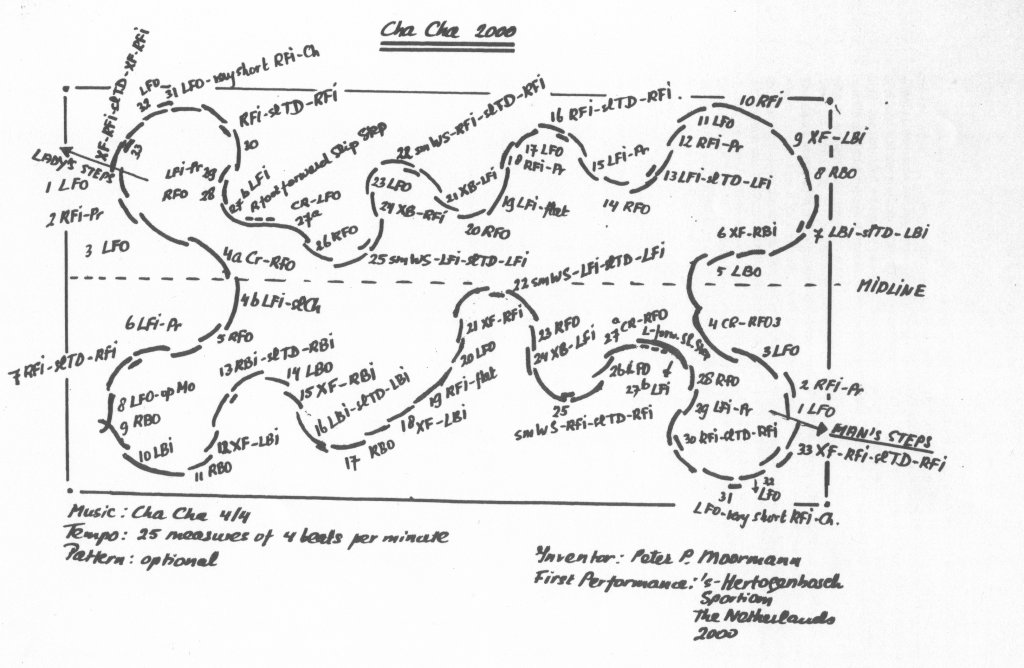 Cha Cha 2000
LADY'S STEPS
1 LFO
2 RFi-Pr
3 LFO
4a Cr-RFO
4b LFi-slCh
5 RFO
6 LFi-Pr
7 RFi-slTD-RFi
8 LFO-op Mo
9 RBO
10 LBi
11 RBO
12 XF-LBi
13 RBi-slTD-RBi
14 LBO
15 XF-RBi
16 LBi-slTD-LBi
17 RBO
18 XF-LBi
19 RFi-flat
20 LFO
21 XF-RFi
22 smWS-LFi-slTD-LFi
23 RFO
24 XB-LFi
25
smWS-RFi-slTD-RFi
26 LFO
27a CR-RFO
L-forw. Sk. Step
27b LFi
28 RFO
29 LFi-Pr
30 RFi-slTD-RFi
31
LFO-very short RFi-Ch.
32
LFO
33 XF-RFi-slTD-RFi
MAN'S STEPS
1 LFO
2 RFi-Pr
3 LFO
4 CR-RFO3
5 LBO
6 XF-RBi
7 LBi-slTD-LBi
8 RBO
9 XF-LBi
10 RFi
11 LFO
12 RFi-Pr
13 LFi-slTD-LFi
14 RFO
15 LFi-Pr
16 RFi-slTD-RFi
17 LFO
18 RFi-Pr
19 LFi-flat
20 RFO
21 XB-LFi
22 smWS-RFi-slTD-RFi
23 LFO
24 XB-RFi
25 smWS-LFi-slTD-LFi
26 RFO
CR-LFO
27a
R foot forward Skip Step
27b LFi
RFO
28
LFi-Pr
29
RFi-slTD-RFi
30
31 LFO-very short RFi-Ch
LFO
32
XF-RFi-slTD-XF-RFi
33
MIDLINE
Music: Cha Cha 4/4
Tempo: 25 measures of 4 beats per minute
Pattern: optional
Inventor: Peter P. Moormann
First Performance: 's-Hertogenbosch
Sportiom
The Netherlands
2000